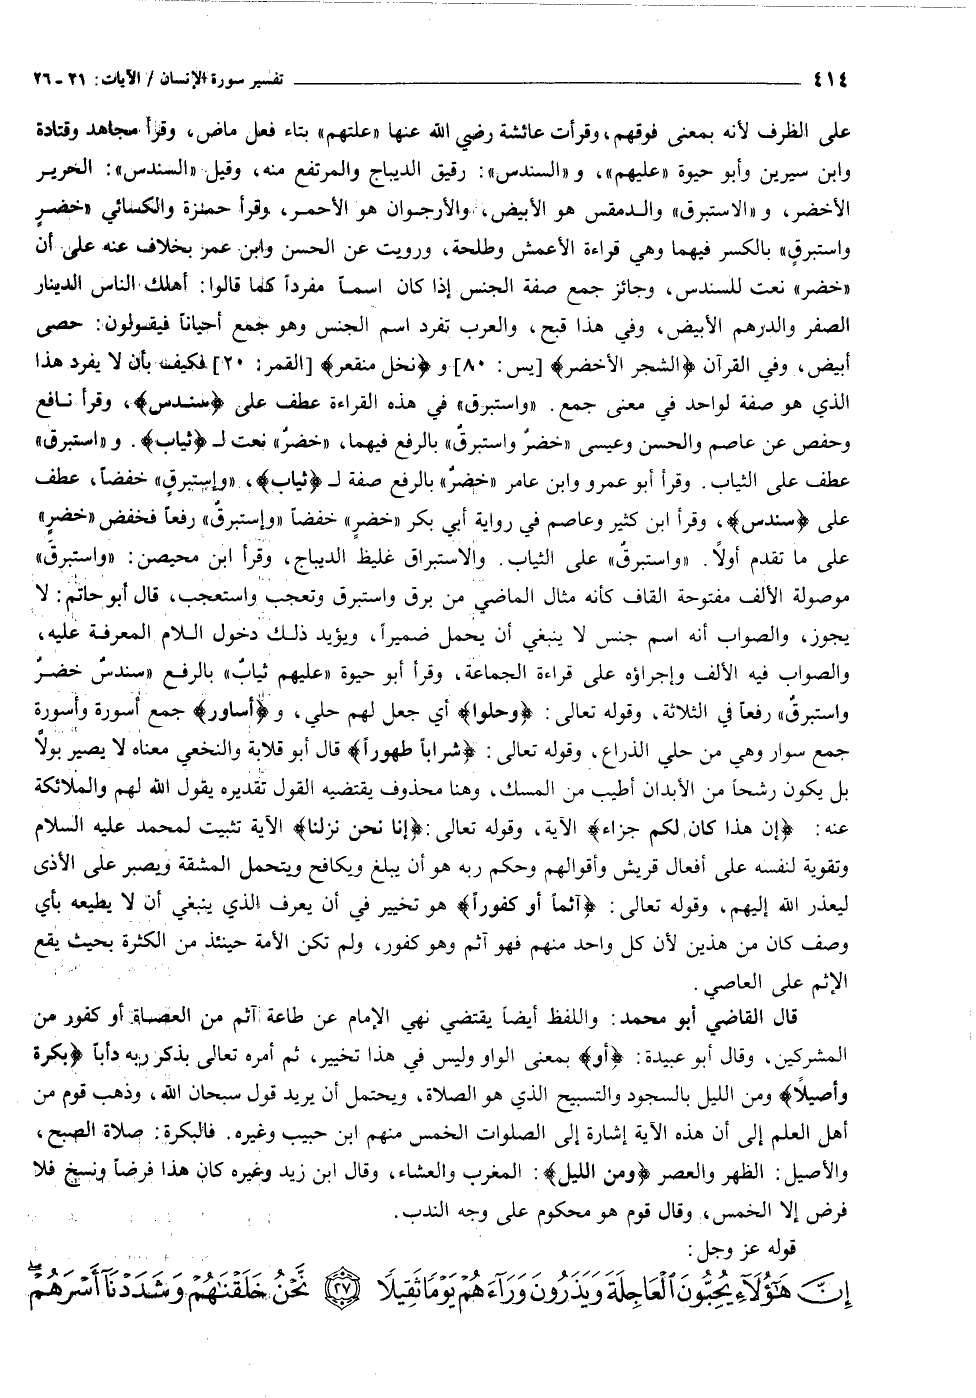 ٤١٤ تفسير سورة الإنسان / الآيات: ٢١ - ٢٦
على الظرف لأنه بمعنى فوقهم، وقرأت عائشة رضي الله عنها «علتهم» بتاء فعل ماض، وقرأ مجاهد وقتادة
وابن سيرين وأبو حيوة «عليهم»، و«السندس»: رقيق الديباج والمرتفع منه، وقيل «السندس»: الحرير
الأخضر، و«الاستبرق» والدمقس هو الأبيض، والأرجوان هو الأحمر، وقرأ حمزة والكسائي «خضرٍ
واستبرقٍ» بالكسر فيهما وهي قراءة الأعمش وطلحة، ورويت عن الحسن وابن عمر بخلاف عنه على أن
«خضر» نعت للسندس، وجائز جمع صفة الجنس إذا كان اسماً مفرداً كما قالوا: أهلك الناس الدينار
الصفر والدرهم الأبيض، وفي هذا قبح، والعرب تفرد اسم الجنس وهو جمع أحياناً فيقولون: حصى
أبيض، وفي القرآن ﴿الشجر الأخضر﴾ [يس: ٨٠] و ﴿نخل منقعر﴾ [القمر: ٢٠] فكيف بأن لا يفرد هذا
الذي هو صفة لواحد في معنى جمع. «واستبرق» في هذه القراءة عطف على ﴿سندس﴾، وقرأ نافع
وحفص عن عاصم والحسن وعيسى «خضرٌ واستبرقٌ» بالرفع فيهما، «خضرٌ» نعت لـ ﴿ثياب﴾. و«استبرق»
عطف على الثياب. وقرأ أبو عمرو وابن عامر «خضرٌ» بالرفع صفة لـ ﴿ثياب﴾، «وإستبرقٍ» خفضاً، عطف
على ﴿سندس﴾، وقرأ ابن كثير وعاصم في رواية أبي بكر «خضرٍ» خفضاً «وإستبرقٌ» رفعاً فخفض «خضرٍ»
على ما تقدم أولاً. «واستبرقٌ» على الثياب. والاستبراق غليظ الديباج، وقرأ ابن محيصن: «واستبرقَ»
موصولة الألف مفتوحة القاف كأنه مثال الماضي من برق واستبرق وتعجب واستعجب، قال أبو حاتم: لا
يجوز، والصواب أنه اسم جنس لا ينبغي أن يحمل ضميراً، ويؤيد ذلك دخول اللام المعرفة عليه،
والصواب فيه الألف وإجراؤه على قراءة الجماعة، وقرأ أبو حيوة «عليهم ثيابٌ» بالرفع «سندسٌ خضرٌ
واستبرقٌ» رفعاً في الثلاثة، وقوله تعالى: ﴿وحلوا﴾ أي جعل لهم حلي، و﴿أساور﴾ جمع أسورة وأسورة
جمع سوار وهي من حلي الذراع، وقوله تعالى: ﴿شراباً طهوراً﴾ قال أبو قلابة والنخعي معناه لا يصير بولاً
بل يكون رشحاً من الأبدان أطيب من المسك، وهنا محذوف يقتضيه القول تقديره يقول الله لهم والملائكة
عنه: ﴿إن هذا كان لكم جزاء﴾ الآية، وقوله تعالى: ﴿إنا نحن نزلنا﴾ الآية تثبيت لمحمد عليه السلام
وتقوية لنفسه على أفعال قريش وأقوالهم وحكم ربه هو أن يبلغ ويكافح ويتحمل المشقة ويصبر على الأذى
ليعذر الله إليهم، وقوله تعالى: ﴿آثماً أو كفوراً﴾ هو تخيير في أن يعرف الذي ينبغي أن لا يطيعه بأي
وصف كان من هذين لأن كل واحد منهم فهو آثم وهو كفور، ولم تكن الأمة حينئذ من الكثرة بحيث يقع
الإثم على العاصي.
قال القاضي أبو محمد: واللفظ أيضاً يقتضي نهي الإمام عن طاعة آثم من العصاة أو كفور من
المشركين، وقال أبو عبيدة: ﴿أو﴾ بمعنى الواو وليس في هذا تخيير، ثم أمره تعالى بذكر ربه دأباً ﴿بكرة
وأصيلاً﴾ ومن الليل بالسجود والتسبيح الذي هو الصلاة، ويحتمل أن يريد قول سبحان الله، وذهب قوم من
أهل العلم إلى أن هذه الآية إشارة إلى الصلوات الخمس منهم ابن حبيب وغيره. فالبكرة: صلاة الصبح،
والأصيل: الظهر والعصر ﴿ومن الليل﴾: المغرب والعشاء، وقال ابن زيد وغيره كان هذا فرضاً ونسخ فلا
فرض إلا الخمس، وقال قوم هو محكوم على وجه الندب.
قوله عز وجل:
إِنَّ هَٰٓؤُلَآءِ يُحِبُّونَ ٱلْعَاجِلَةَ وَيَذَرُونَ وَرَآءَهُمْ يَوْمًا ثَقِيلًا ۝٢٧ نَّحْنُ خَلَقْنَٰهُمْ وَشَدَدْنَآ أَسْرَهُمْ ۖ